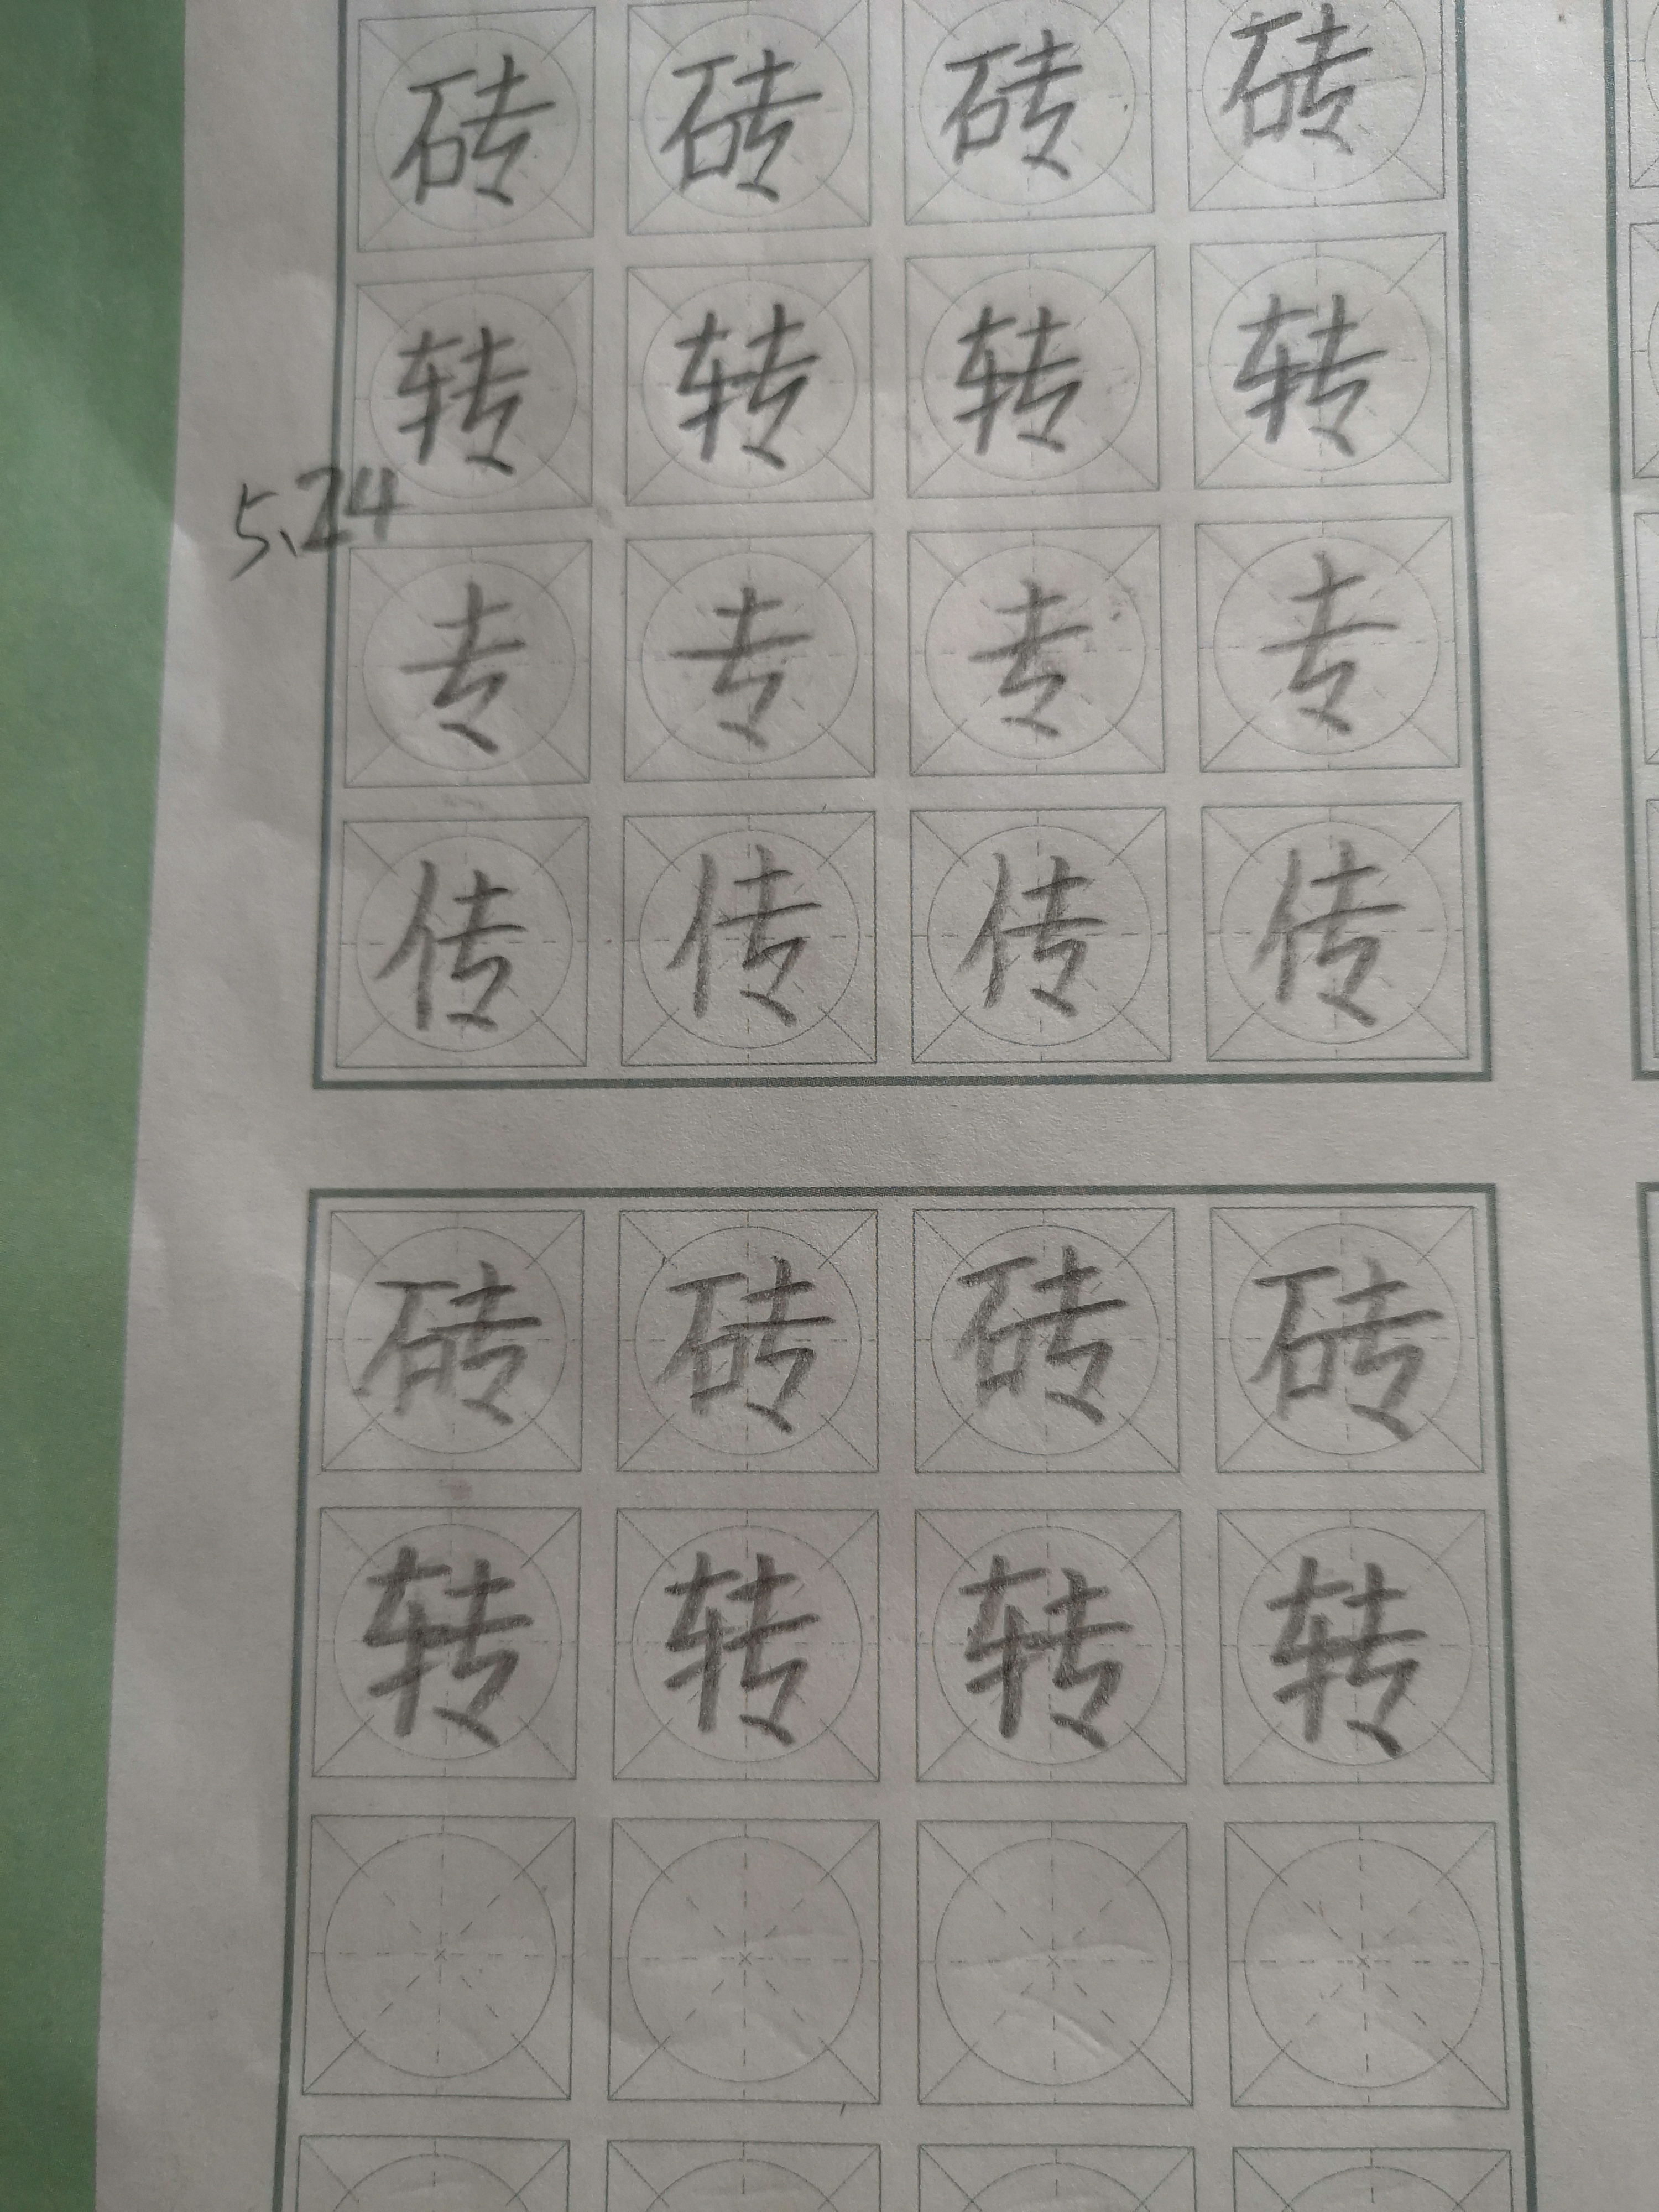 砖 砖 砖 砖
转 转 转 转
5.24
专 专 专 专
传 传 传 传
砖 砖 砖 砖
转 转 转 转